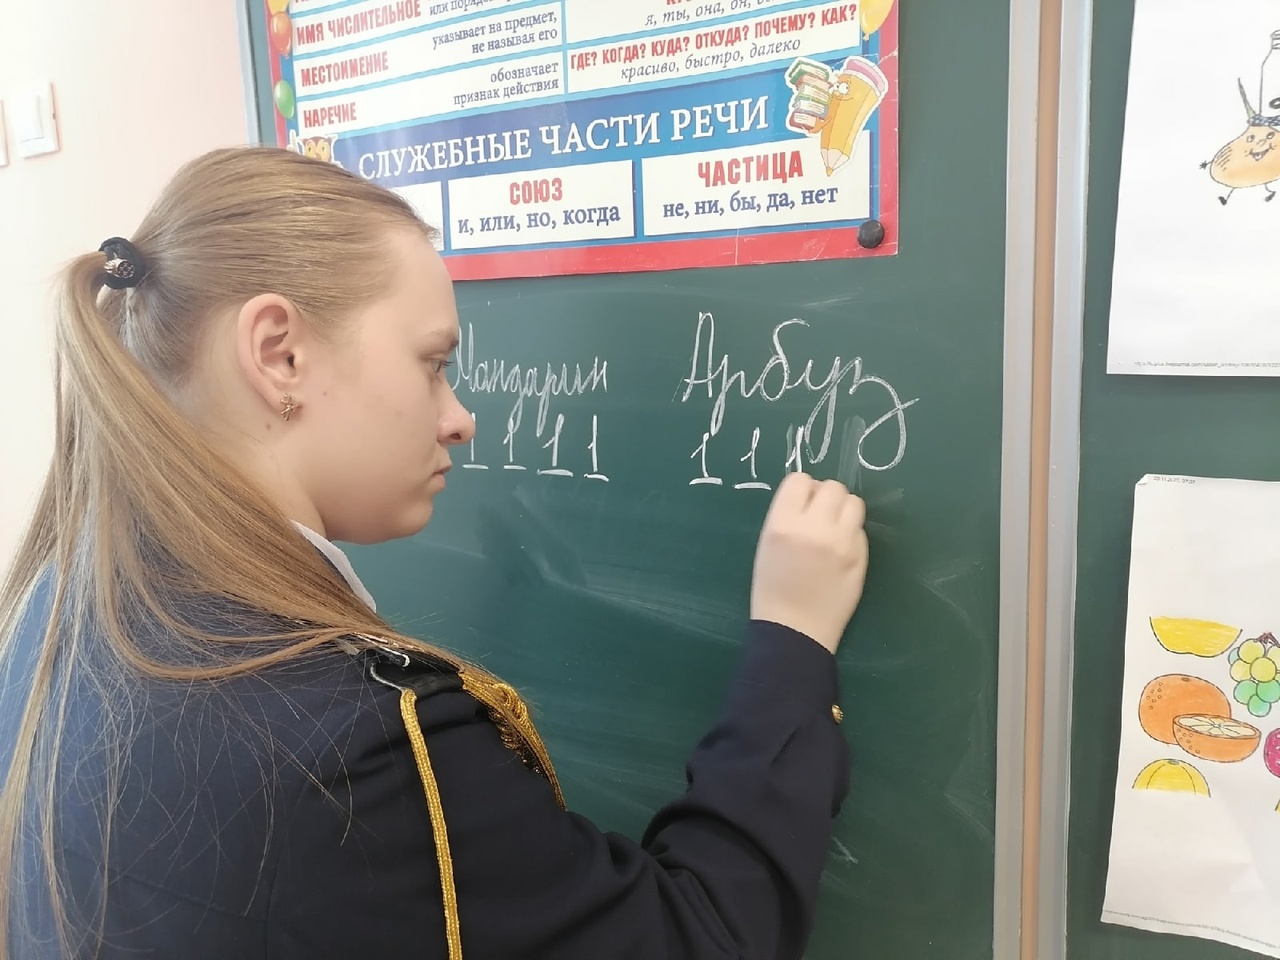 ИМЯ ЧИСЛИТЕЛЬНОЕ
я, ты, она, он,
МЕСТОИМЕНИЕ
указывает на предмет,
не называя его
ГДЕ? КОГДА? КУДА? ОТКУДА? ПОЧЕМУ? КАК?
красиво, быстро, далеко
НАРЕЧИЕ
обозначает
признак действия
СЛУЖЕБНЫЕ ЧАСТИ РЕЧИ
СОЮЗ
и, или, но, когда
ЧАСТИЦА
не, ни, бы, да, нет
Мандарин Арбуз
1 1 1 1 1 1 1